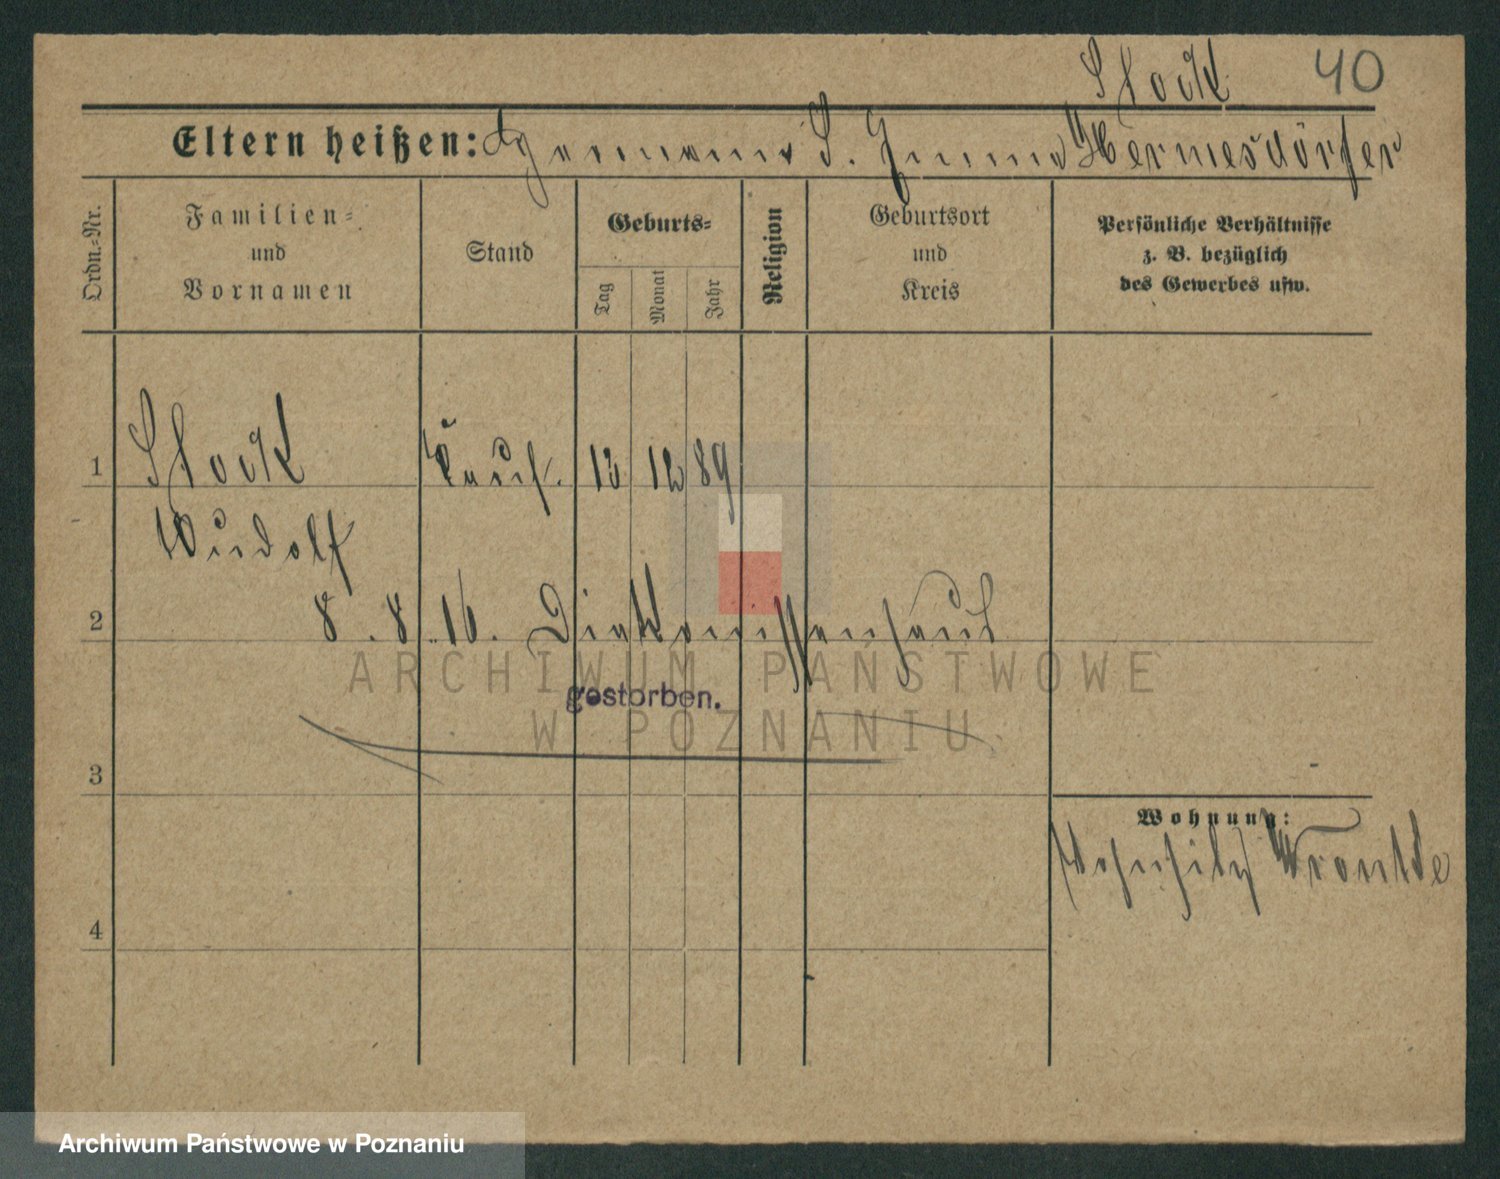 Stock 40
Eltern heißen: Hermann S. Emma Hermesdörfer
Ordn.-Nr.
Familien-
und
Vornamen
Stand
Geburts-
Tag
Monat
Jahr
Religion
Geburtsort
und
Kreis
Persönliche Verhältnisse
z. B. bezüglich
des Gewerbes usw.
1 Stock Kaufm. 13 12 89
Rudolf
2 8. 8. 16. Diakonissenhaus
gestorben.
ARCHIWUM PAŃSTWOWE
W POZNANIU
3
Wohnung:
Wronke
4
Archiwum Państwowe w Poznaniu